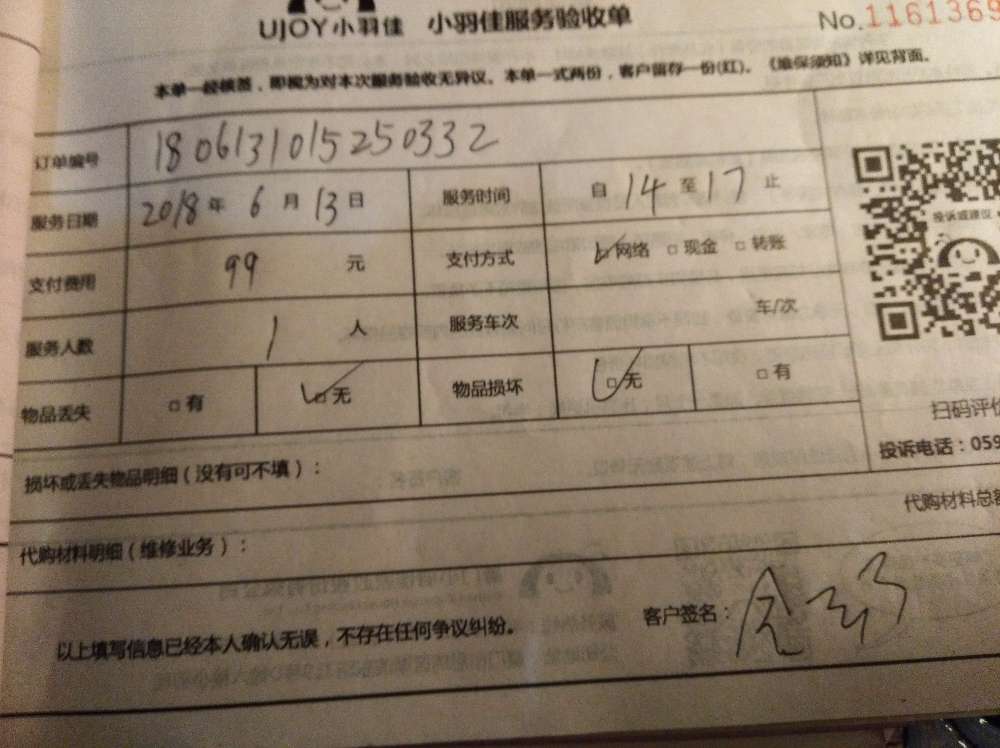 UJOY小羽佳 小羽佳服务验收单
No.1161369
本单一经核签，即视为对本次服务验收无异议。本单一式两份，客户留存一份(红)。《维保须知》详见背面。
订单编号 1806131015250332
服务日期 2018年 6月 13日 服务时间 自 14 至 17 止
支付费用 99 元 支付方式 ☑网络 □现金 □转账
服务人数 1 人 服务车次 车/次
物品丢失 □有 ☑无 物品损坏 ☑无 □有
投诉或建议
扫码评价
投诉电话：059
损坏或丢失物品明细（没有可不填）：
代购材料总额
代购材料明细（维修业务）：
以上填写信息已经本人确认无误，不存在任何争议纠纷。
客户签名：